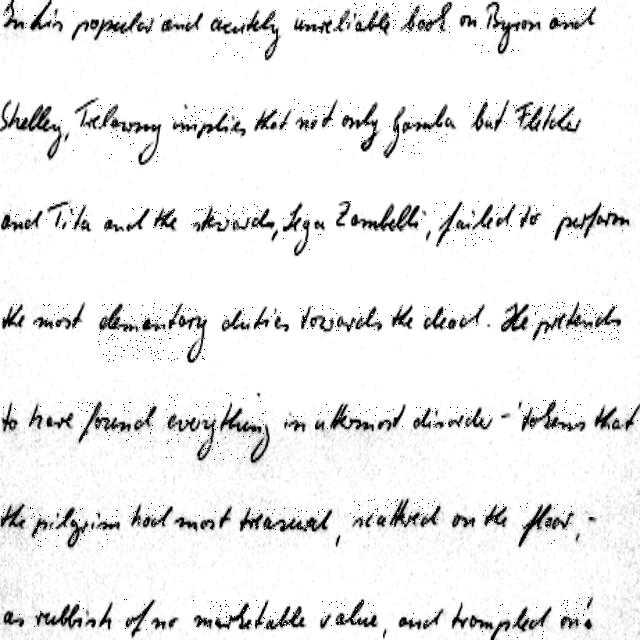 In his popular and acutely unreliable book on Byron and
Shelley, Trelawny implies that not only Gamba but Fletcher
and Tita and the stewards, Lega Zambelli, failed to perform
the most elementary duties towards the dead. He pretends
to have found everything in uttermost disorder - 'tokens that
the pilgrim had most treasured, scattered on the floor, -
as rubbish of no marketable value, and trampled on.'